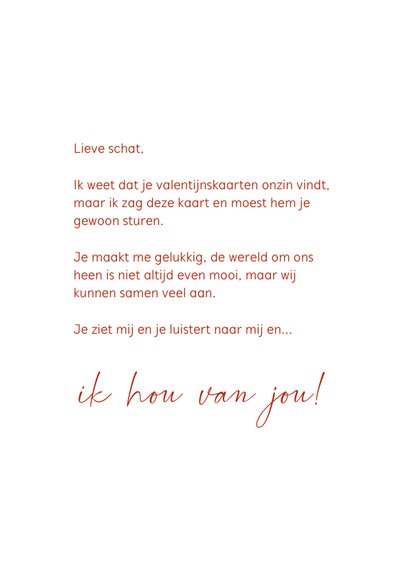 Lieve schat,
Ik weet dat je valentijnskaarten onzin vindt,
maar ik zag deze kaart en moest hem je
gewoon sturen.
Je maakt me gelukkig, de wereld om ons
heen is niet altijd even mooi, maar wij
kunnen samen veel aan.
Je ziet mij en je luistert naar mij en...
ik hou van jou!